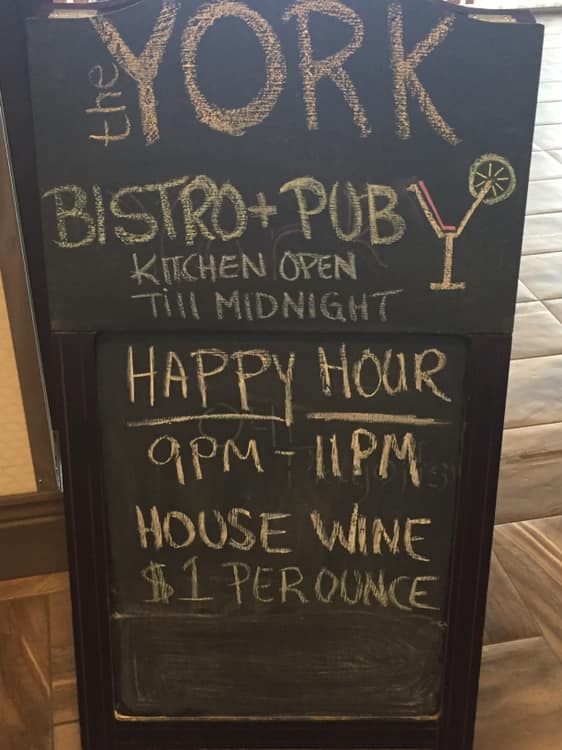 the YORK
BISTRO + PUB
KITCHEN OPEN
Till MIDNIGHT
HAPPY HOUR
9PM - 11PM
HOUSE WINE
$1 PER OUNCE